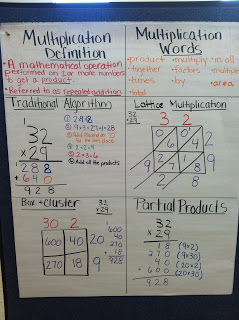 Multiplication
Definition
• A mathematical operation
performed on 2 or more numbers
to get a product.
• Referred to as repeated addition
Multiplication
Words
• product • multiply • in all
• together • factors • multiple
• times • by • area
• total
Traditional Algorithm
32
× 29
288
+ 640
928
② 9×3=27+1=28
④ 2×2=4
⑤ 2×3=6
⑥ Add all the products
Lattice Multiplication
32
× 29
3 2
Box + Cluster
32
× 29
30 2
600 40 20
270 18 9
600
40
270
+ 18
928
Partial Products
32
× 29
18 (9×2)
270 (9×30)
40 (20×2)
+ 600 (20×30)
928